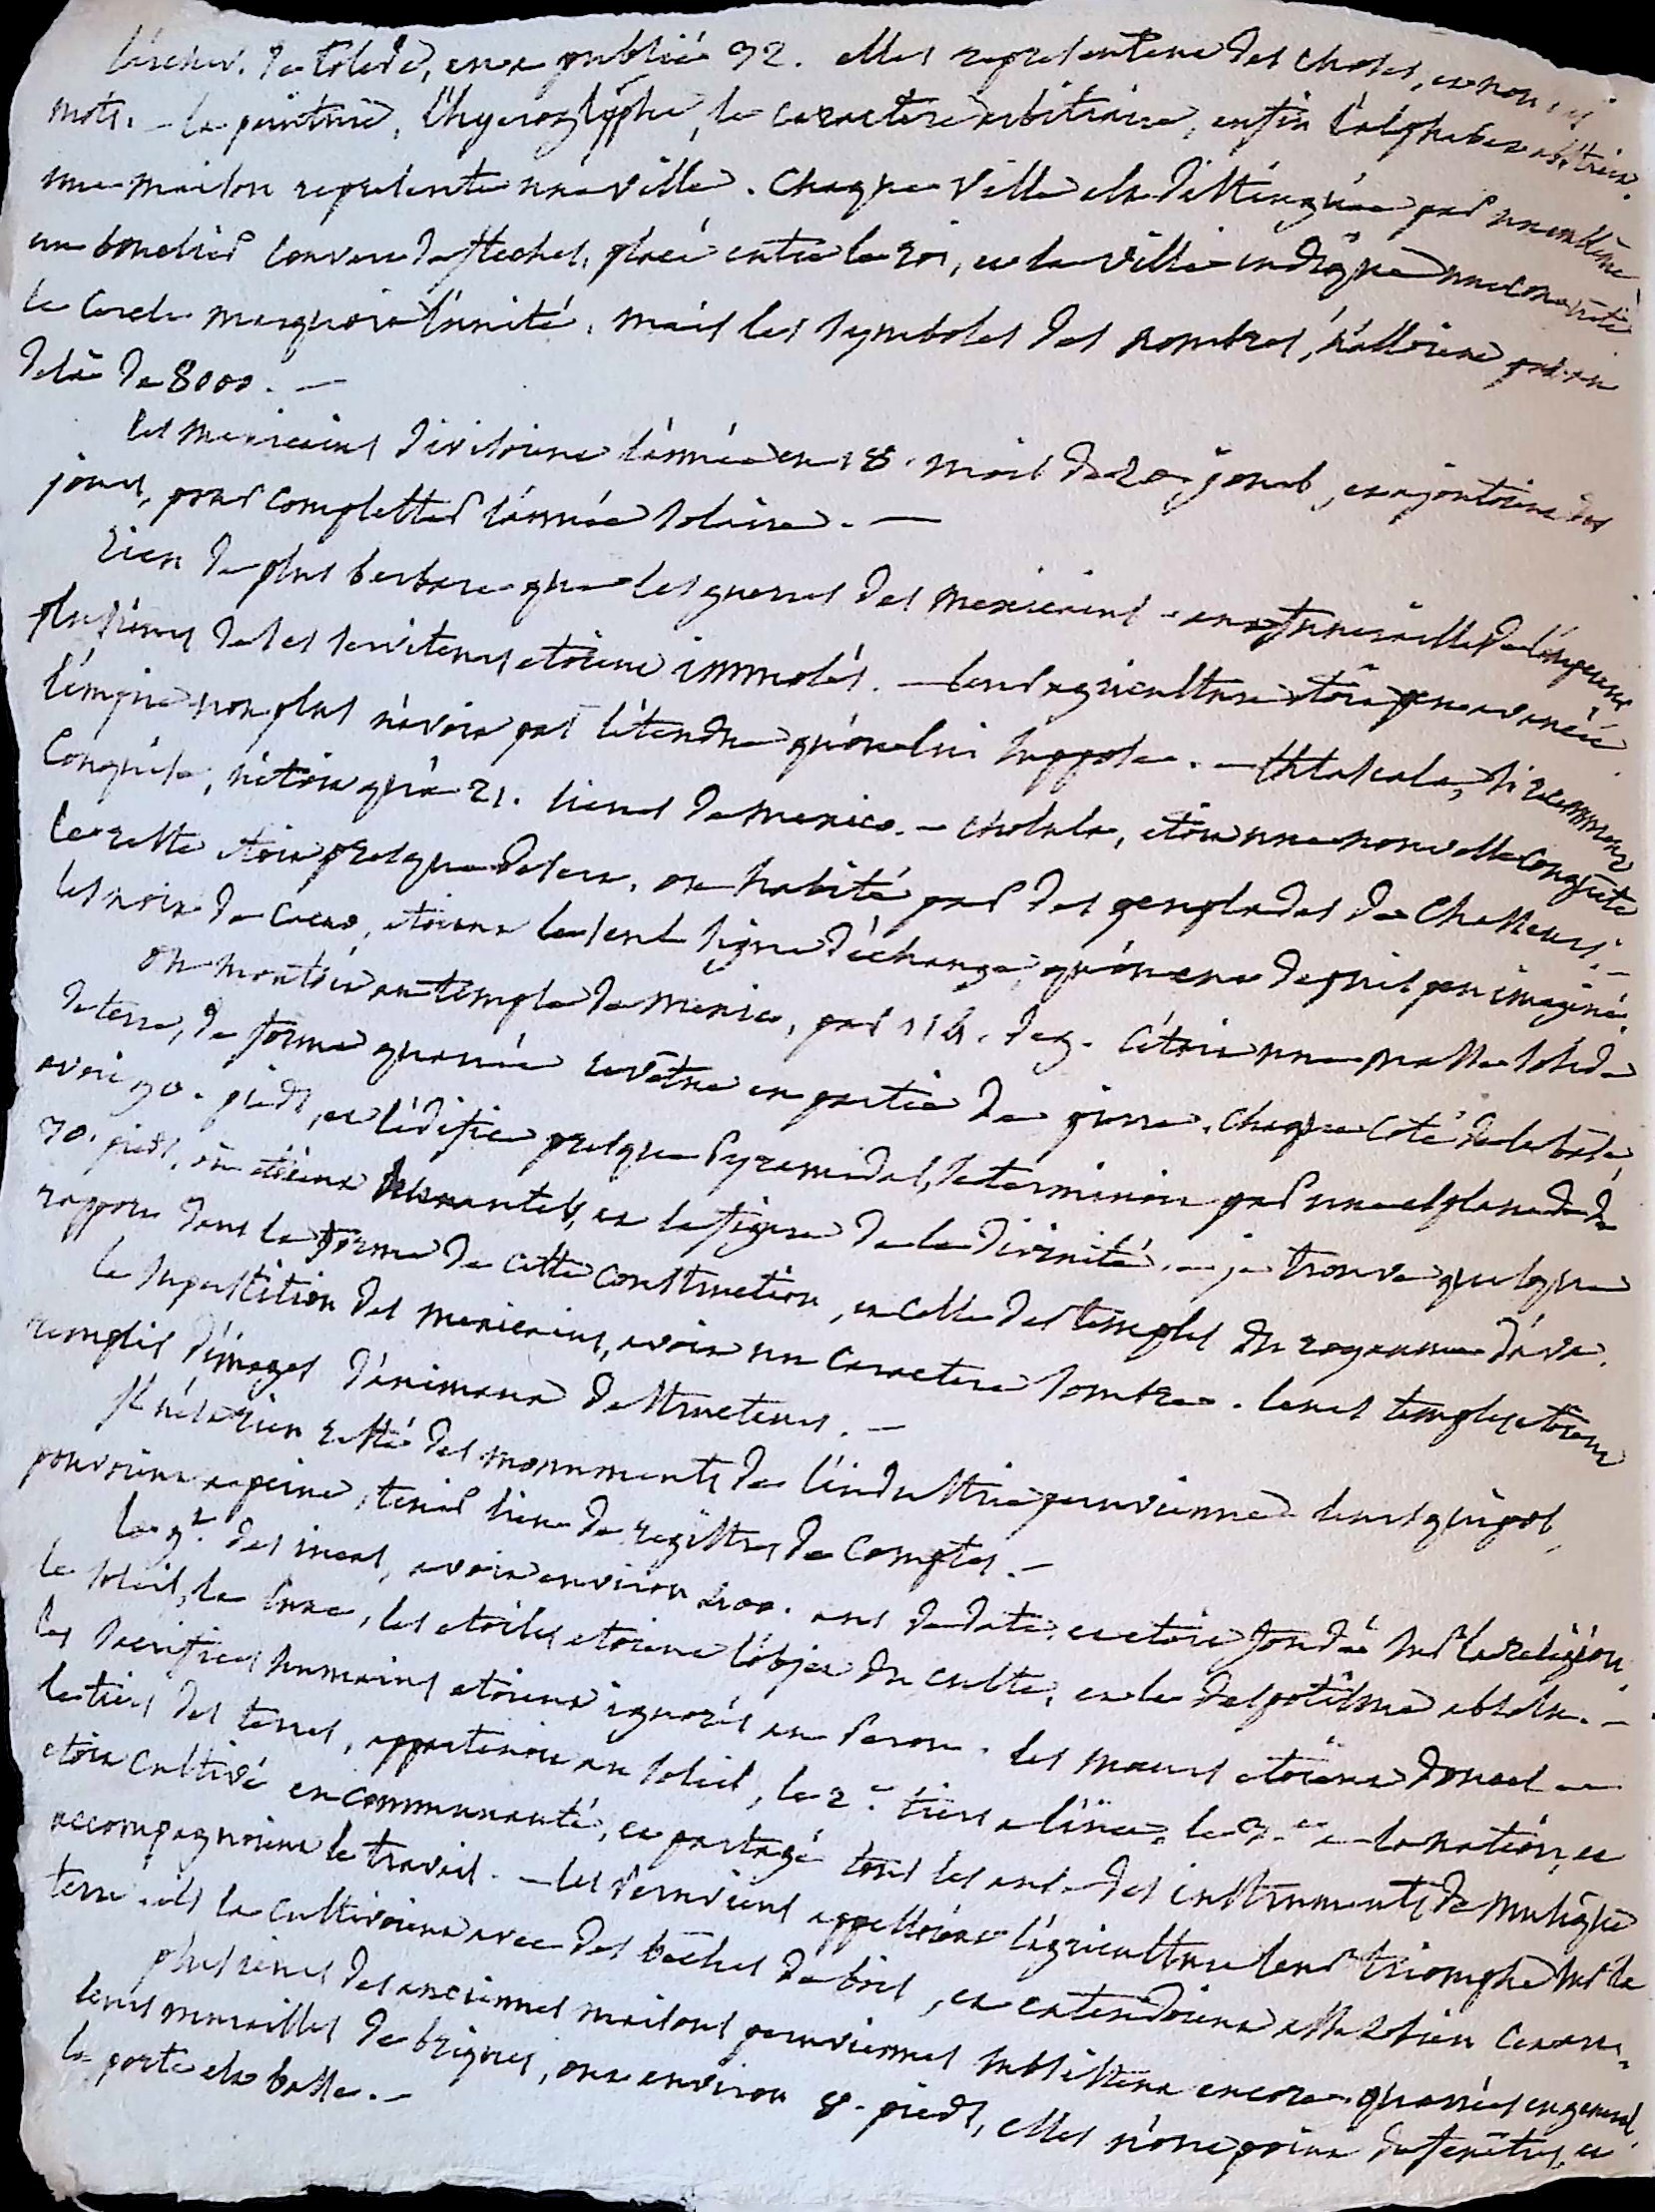 l'archev. de tolede, en a publié 32. elles representent des choses, et non des
mots. — la peinture, l'hyerozlÿphe, le caractère arbitraire, enfin l'alphabet
une maison represente une ville. chaque ville est distinguée par un emblême
un bouclier couvert de fleches, placé entre le roi, et la ville indique une conquête
le cercle marquoit l'unité, mais les symboles des nombres, n'alloient pas au
delà de 8000. —
les mexicains divisoient l'année en 18. mois de 20 jours, et ajoutoient des
jours, pour completter l'année solaire. —
rien de plus barbare que les guerres des mexicains – aux funerailles de l'empereur
plusieurs de ses serviteurs etoient immolés. — leur agriculture etoit peu avancée
l'empire non plus n'avoit pas l'étendue qu'on lui suppose. — thlascala,
conquise, n'étoit qu'à 21. lieues de mexico. — cholula, etoit une nouvelle conquête
le reste etoit presque desert, ou habité par des peuplades de chasseurs. —
les noix de cacao, etoient le seul signe d'échange, qu'on eut depuis peu imaginé.
on montoit au temple de mexico, par 114. deg. c'étoit une masse solide
de terre, de forme quarrée revêtue en partie de pierre. chaque coté de la base,
avoit 90. pieds, et l'édifice presque pyramidal, se terminoit par une esplanade de
30. pieds, où etoient les autels, et la figure de la divinité. – je trouve quelque
rapport dans la forme de cette construction, et celle des temples du royaume d'ava.
la superstition des mexicains, avoit un caractere sombre. leurs temples etoient
remplis d'images d'animaux destructeurs. —
il n'est rien resté des monuments de l'industrie peruvienne leurs quipos,
pouvoient a peine, tenir lieu de registres de comptes. —
le gt. des incas, avoit environ 400. ans de date, et etoit fondé sur la religion.
le soleil, la lune, les etoiles etoient l'objet du culte, et le despotisme absolu. —
les sacrifices humains etoient ignorés au Perou. les mœurs etoient douces —
le tiers des terres, appartenoit au soleil, le 2e. tiers a l'inca, le 3.e a la nation, et
etoit cultivé en communauté, et partagé tous les ans. des instruments de musique
accompagnoient le travail. — les Peruviens appelloient l'agriculture leur triomphe sur la
terre. ils la cultivoient avec des bêches de bois, et entendoient assez bien
plusieurs des anciennes maisons peruviennes subsistent encore. quarrées en general
leurs murailles de briques, ont environ 8. pieds, elles n'ont point de fenêtres, et
la porte est basse. —